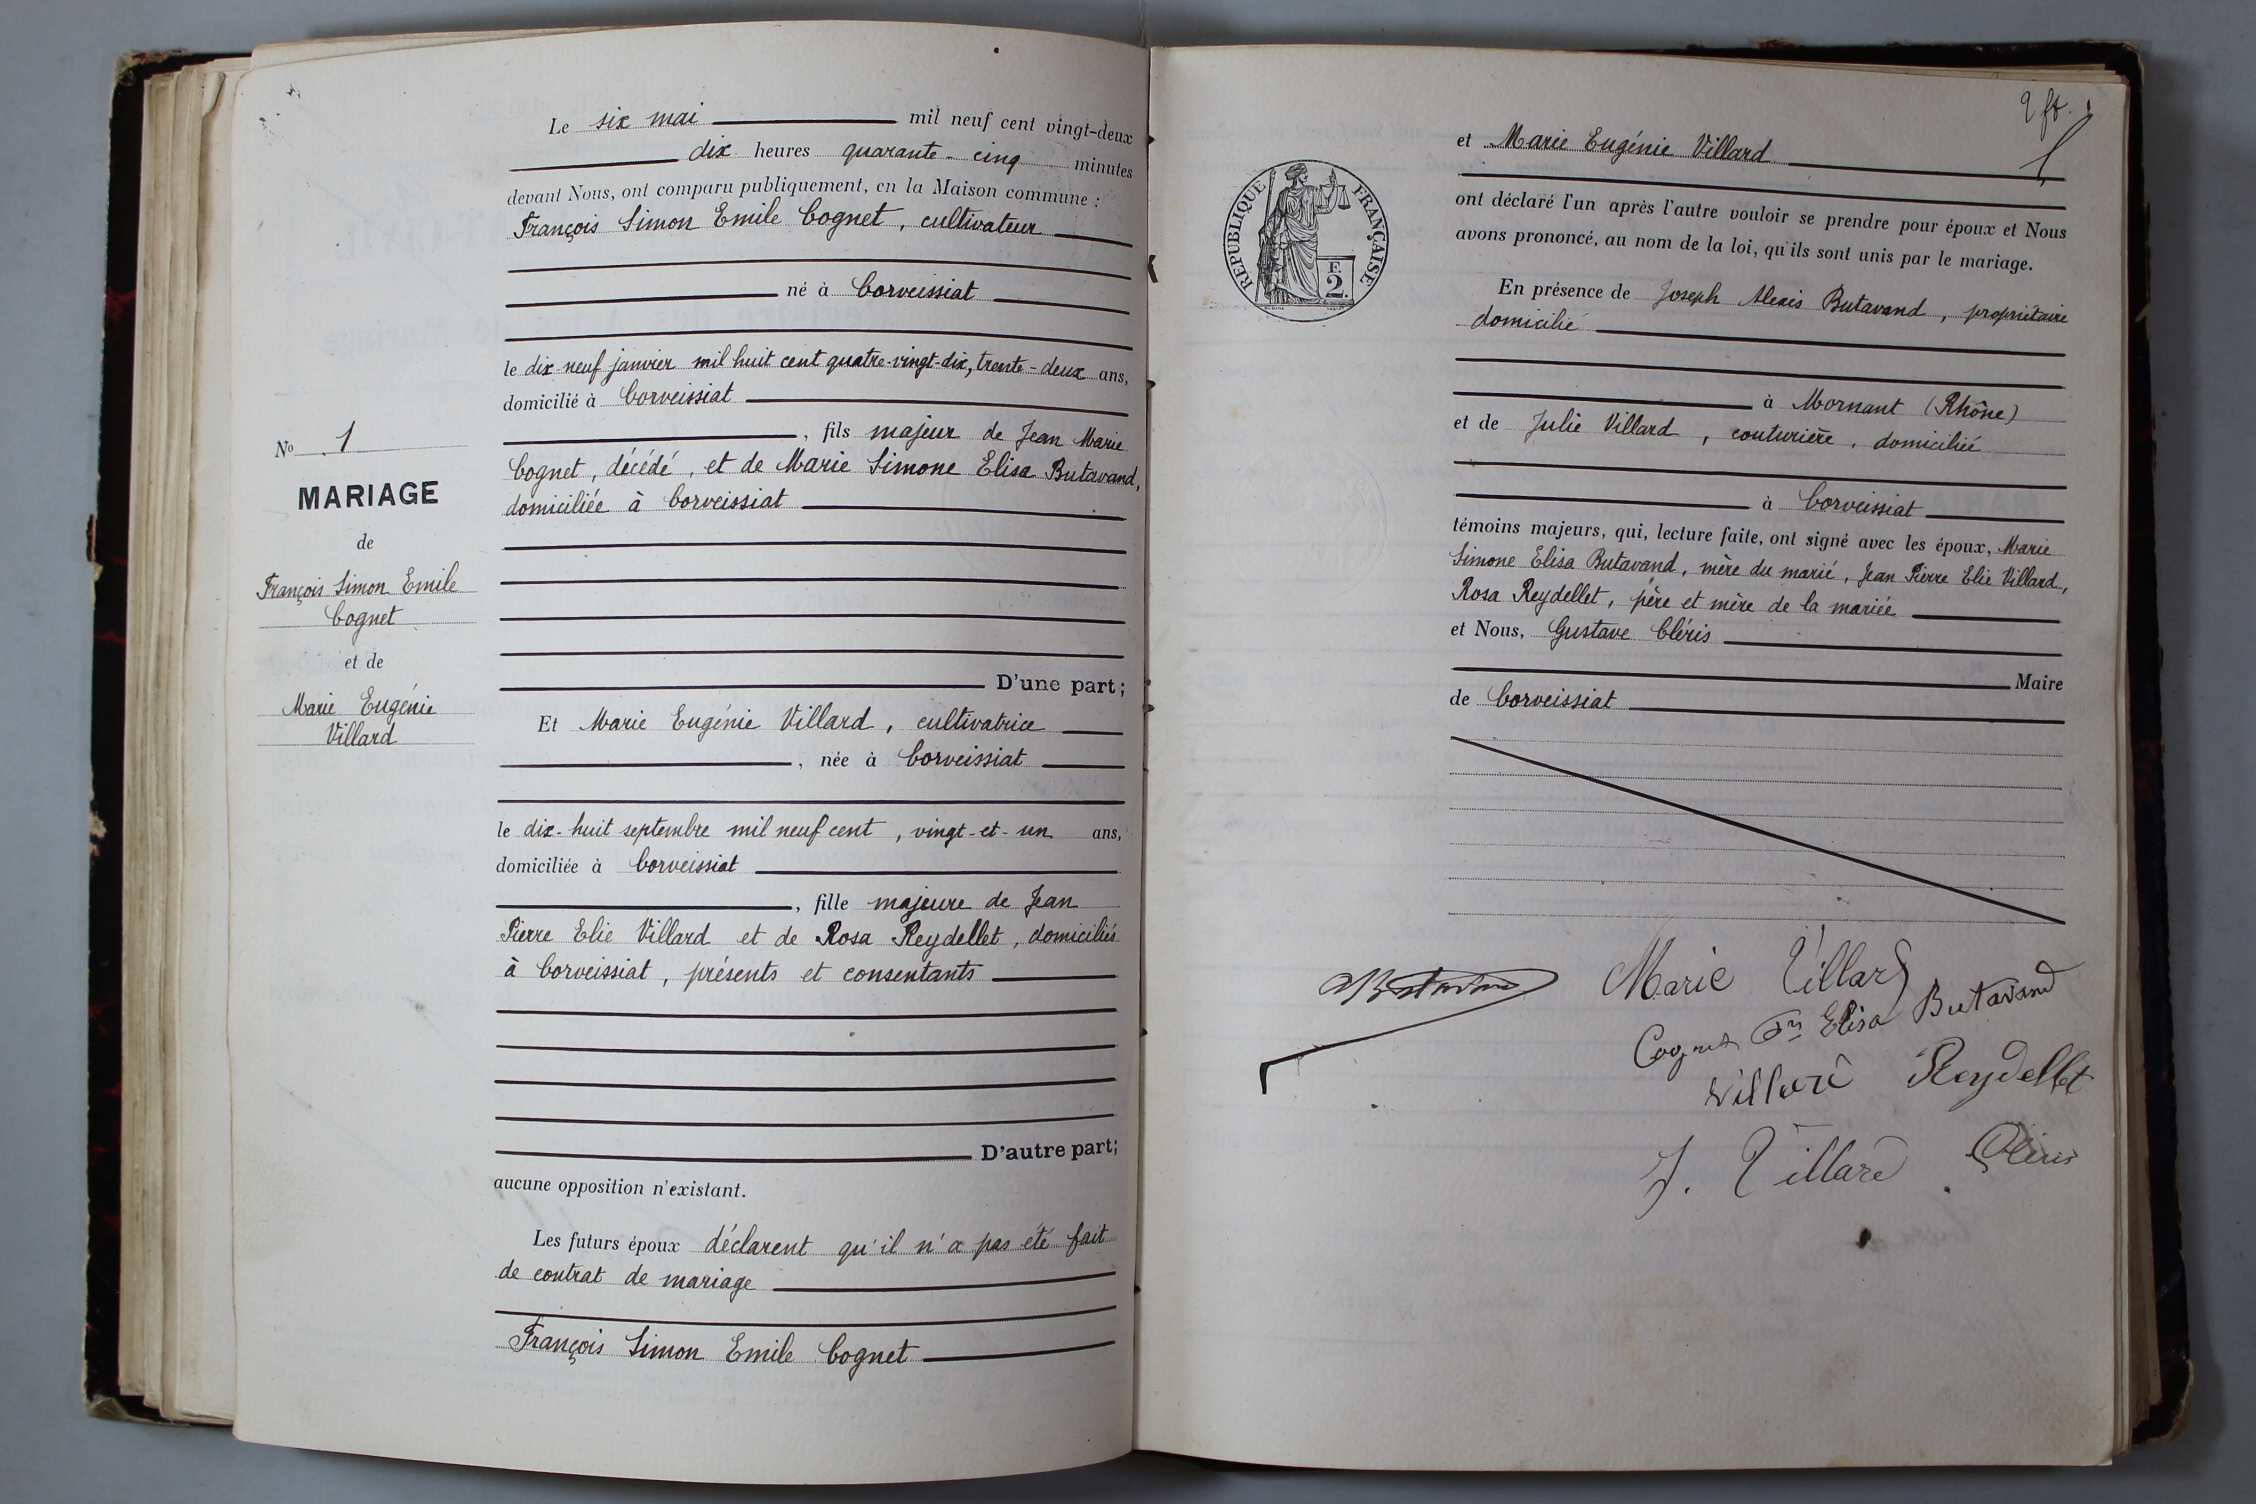 Le six mai mil neuf cent vingt-deux
dix heures quarante-cinq minutes
devant Nous, ont comparu publiquement, en la Maison commune :
François Simon Emile Cognet, cultivateur
né à Corveissiat
le dix-neuf janvier mil huit cent quatre-vingt-dix, trente-deux ans,
domicilié à Corveissiat
, fils majeur de Jean Marie
Cognet, décédé, et de Marie Simone Elisa Butavand,
domiciliée à Corveissiat
D'une part;
Et Marie Eugénie Villard, cultivatrice
, née à Corveissiat
le dix-huit septembre mil neuf cent, vingt-et-un ans,
domiciliée à Corveissiat
, fille majeure de Jean
Pierre Elie Villard et de Rosa Reydellet, domiciliés
à Corveissiat, présents et consentants
D'autre part;
aucune opposition n'existant.
Les futurs époux déclarent qu'il n'a pas été fait
de contrat de mariage
François Simon Emile Cognet
No 1
MARIAGE
de
François Simon Emile
Cognet
et de
Marie Eugénie
Villard
et Marie Eugénie Villard
ont déclaré l'un après l'autre vouloir se prendre pour époux et Nous
avons prononcé, au nom de la loi, qu'ils sont unis par le mariage.
En présence de Joseph Alexis Butavand, propriétaire
domicilié
à Mornant (Rhône)
et de Julie Villard, couturière, domiciliée
à Corveissiat
témoins majeurs, qui, lecture faite, ont signé avec les époux, Marie
Simone Elisa Butavand, mère du marié, Jean Pierre Elie Villard,
Rosa Reydellet, père et mère de la mariée
et Nous, Gustave Cléris
Maire
de Corveissiat
REPUBLIQUE FRANÇAISE
F.
2.
Butavand
Marie Villard
Cognet Elisa Butavand
Villard Reydellet
J. Villard Cléris